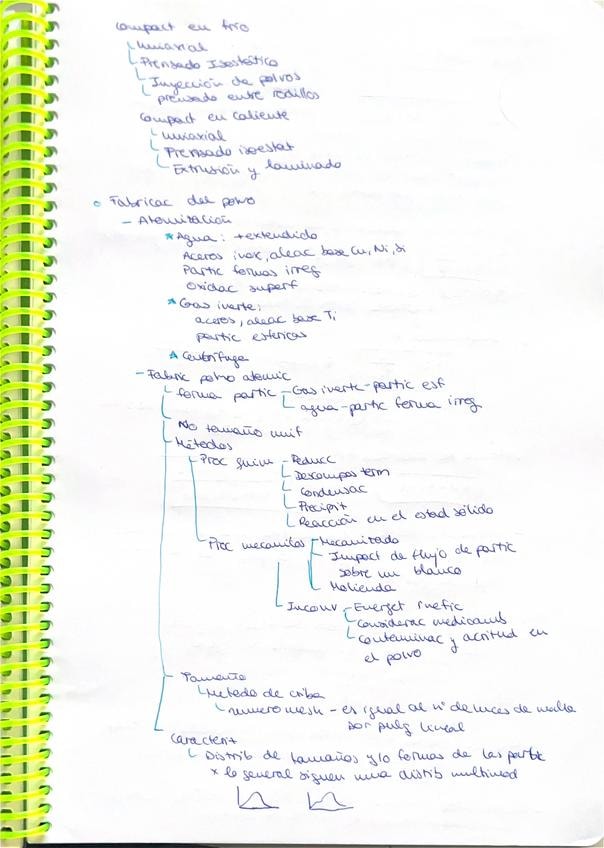 Compact en frio
Uniaxial
Prensado Isostático
Inyección de polvos
prensado entre rodillos
Compact en caliente
uniaxial
Prensado isostat
Extrusión y laminado
Fabricac del polvo
- Atomización
* Agua: + extendido
Aceros inox, aleac base Cu, Ni, Si
Partic formas irreg
Oxidac superf
* Gas inerte:
aceros, aleac base Ti
partic esfericas
* Centrifuga
- Fabric polvo atomic
forma partic - Gas inerte - partic esf
agua - partic forma irreg
No tamaño unif
Métodos
Proc quim - Reducc
Descompos term
Condensac
Precipit
Reacción en el estad sólido
Proc mecanicos - Mecanizado
Impact de flujo de partic
sobre un blanco
Molienda
Inconv - Energet inefic
Considerac medioamb
Contaminac y acritud en
el polvo
Tamaño
Metodo de criba
numero mesh - es igual al nº de luces de malla
por pulg lineal
Caracterit
Distrib de tamaños y/o formas de las partic
* lo general siguen una distrib multimod